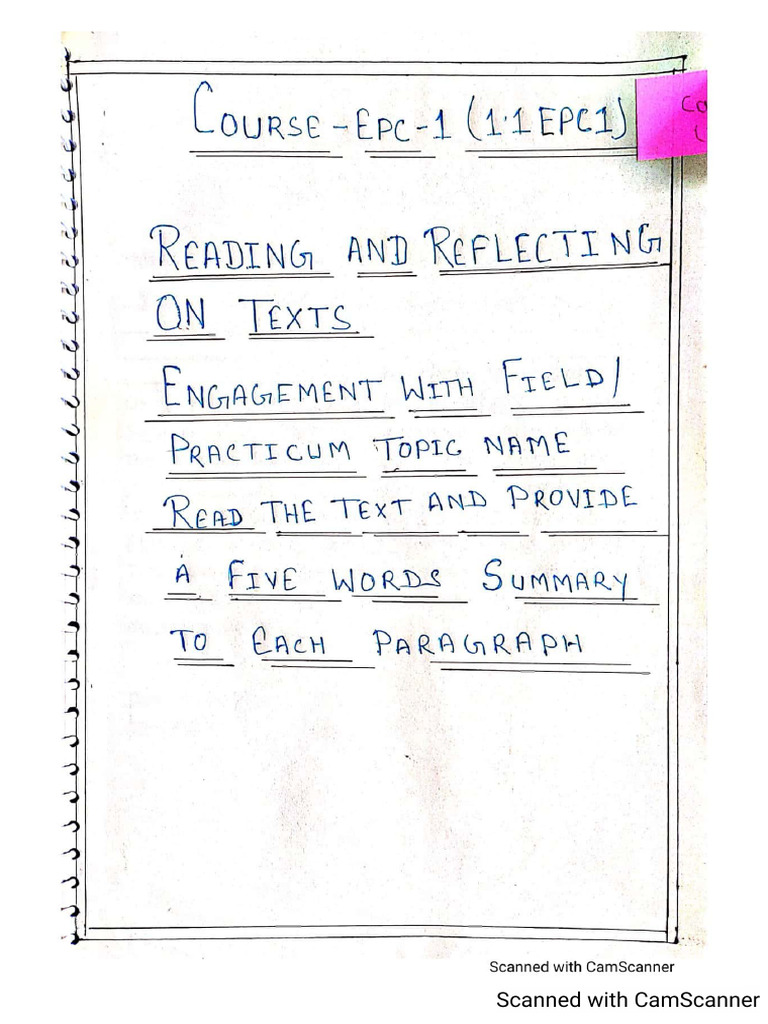 COURSE-EPC-1 (1.1 EPC1)
READING AND REFLECTING
ON TEXTS
ENGAGEMENT WITH FIELD/
PRACTICUM TOPIC NAME
READ THE TEXT AND PROVIDE
A FIVE WORDS SUMMARY
TO EACH PARAGRAPH
Scanned with CamScanner
Scanned with CamScanner